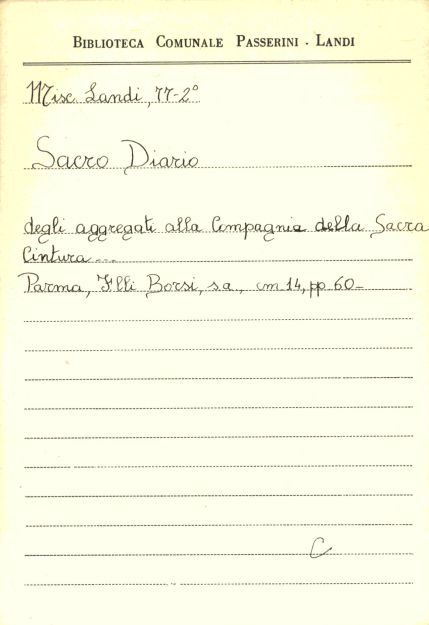 BIBLIOTECA COMUNALE PASSERINI - LANDI
Misc Landi, 77-2°
Sacro Diario
degli aggregati alla Compagnia della Sacra
Cintura...
Parma, Flli Borsi, s.a., cm 14, pp 60-
C